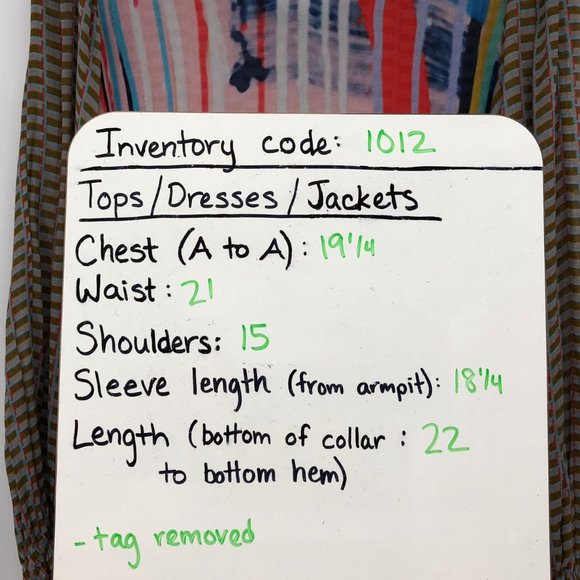 Inventory code: 1012
Tops/Dresses/Jackets
Chest (A to A): 19 1/4
Waist: 21
Shoulders: 15
Sleeve length (from armpit): 18 1/4
Length (bottom of collar : 22
to bottom hem)
- tag removed